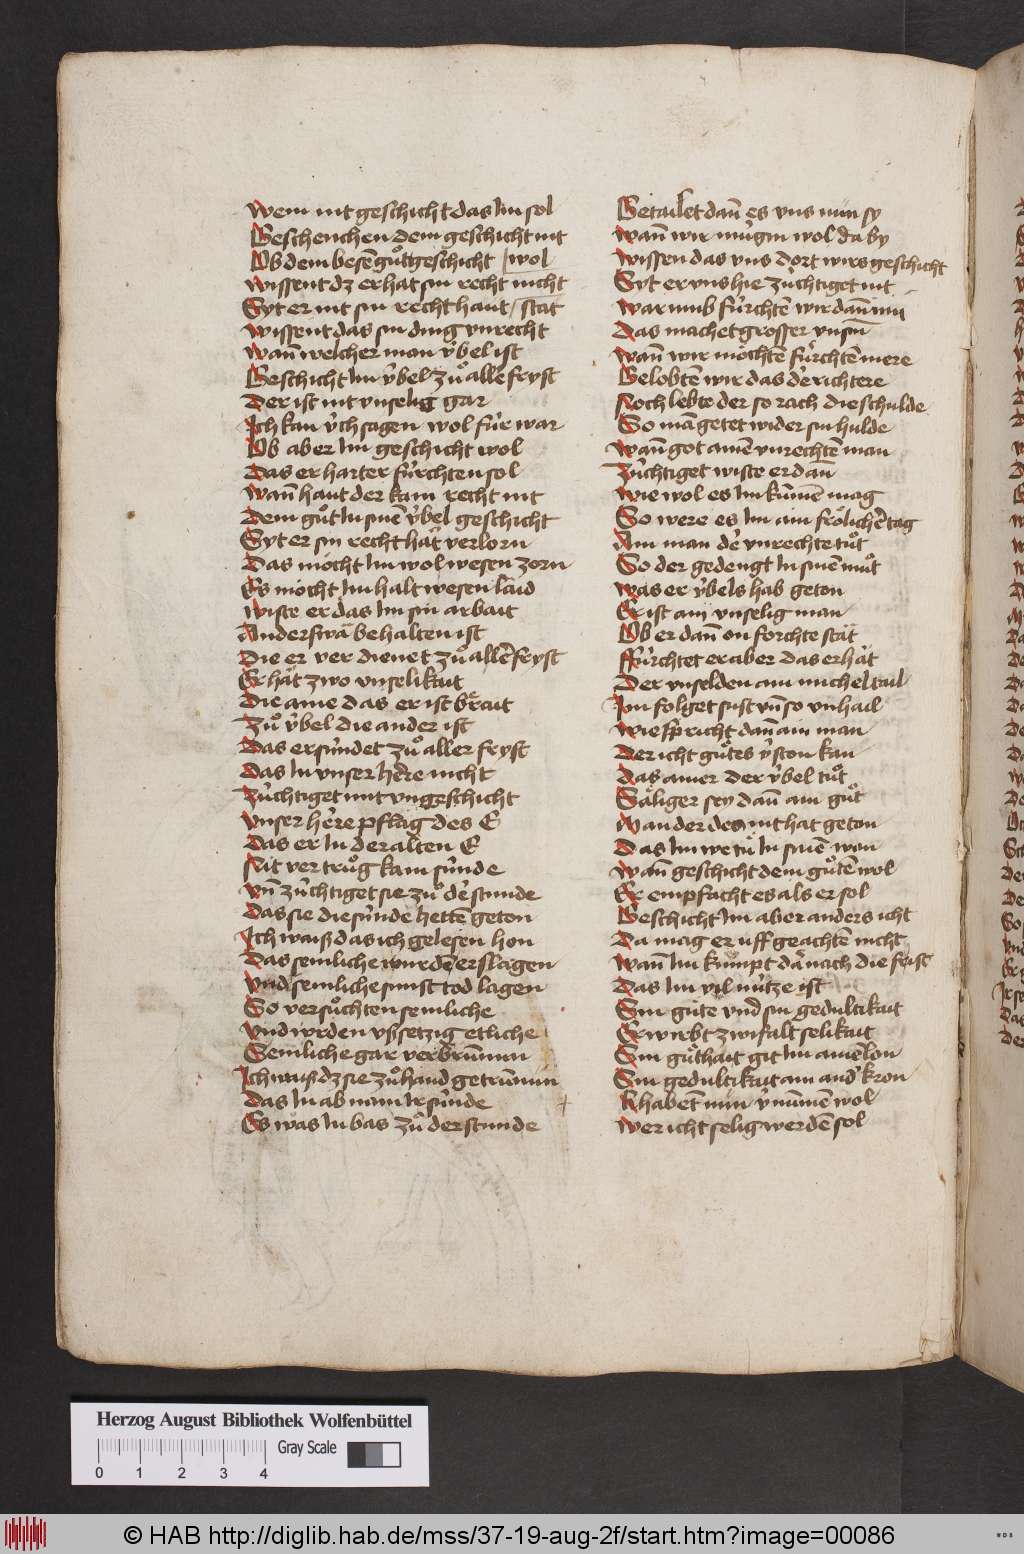 Wem nit geschicht das Im sol
Geschenchen dem geschicht nit
Ob dem besen gůt geschicht / wol
Wissent dz er hat sin recht nicht
Syt er nit sin recht haut / stat
Wissent das sin ding vnrecht
Wan̄ welcher man v̍bel ist
Geschicht Im v̍bel zů alle fryst
Der ist nit vnselig gar
Ich kan v̍ch sagen wol fu̍r war
Ob aber Im geschicht wol
Das er harter fu̍rchten sol
Wan̄ haut der kain recht nit
Dem gůt In sinē v̍bel geschicht
Syt er sin recht hāt verlorn
Das mo̍cht Im wol wesen zorn
Es mo̍cht Im halt wesen laid
Wiste er das Im sin arbait
Anderswā behalten ist
Die er ver dienet zů allē fryst
Er hāt zwo vnselikait
Die aine das er ist brait
Zů v̍bel die ander ist
Das er su̍ndet zů aller fryst
Das In vnser here nicht
Zu̍chtiget mit vngeschicht
Vnser he̍re pflag des E
Das er In der alten E
Nit vertrůg kain su̍nde
Vn̄ zu̍chtiget sie zů de̍ stunde
Das sie die su̍nde hette geton
Ich waiß das ich gelesen hon
Das semliche wurdē erslagen
Vnd semliche sunst tod lagen
So versůchten semliche
Vnd wrden vßsetzig etliche
Semliche gar verbrūnnen
Ich waiß dz sie zůhand getrūnnin
Das In ab nam Ir su̍nde
Es was In bas zů der stunde
Getailet dan̄ es vns nun sy
Wan̄ wir mu̍gin wol da by
Wissen das vns dort wirs geschicht
Syt er vns hie zu̍chtiget nit
Warumb fu̍rchtē wir dan̄ im
Das machet grosser vnsin̄
Wan̄ wir mo̍chtē fu̍rchtē mere
Gelobtē wir das de̍ richtere
Noch lebte der so rach die schulde
So mā getet wider sin hulde
Wan̄ got ainē vnrechtē man
Zu̍chtiget wiste er dan̄
Wie wol es Im kūmē mag
So were es Im ain fro̍lichē tag
Ain man de̍ vnrechte tůt
So der gedengt In sinē můt
Was er v̍bels hab geton
Er ist ain vnselig man
Ob er dan̄ on forchte stāt
Ffu̍rchtet er aber das er hāt
Der vnselden ain michel tail
Im folget sust vn̄ so vnhail
Wie spricht dan̄ ain man
Der icht gůtes v̍ston kan
Das ainer der v̍bel tůt
Sa̍liger sey dan̄ ain gůt
Wan der des nit hat geton
Das Im we tů In sinē won
Wan̄ geschicht dem gůtē wol
Er empfacht es als er sol
Geschicht Im aber anders icht
Da mag er uff geachtē nicht
Wan̄ Im kumpt da̍ nach die frist
Das Im vil nu̍tze ist
Sin gu̍te vnd sin gedultikait
Erwirbt zwifalt selikait
Sin gůthait git Im ainē lon
Sin gedultikait ain and' kron
Ir habet nun v̍nūmē wol
Wer icht selig werdē sol
Herzog August Bibliothek Wolfenbüttel
Gray Scale
0 1 2 3 4
© HAB http://diglib.hab.de/mss/37-19-aug-2f/start.htm?image=00086
WDB